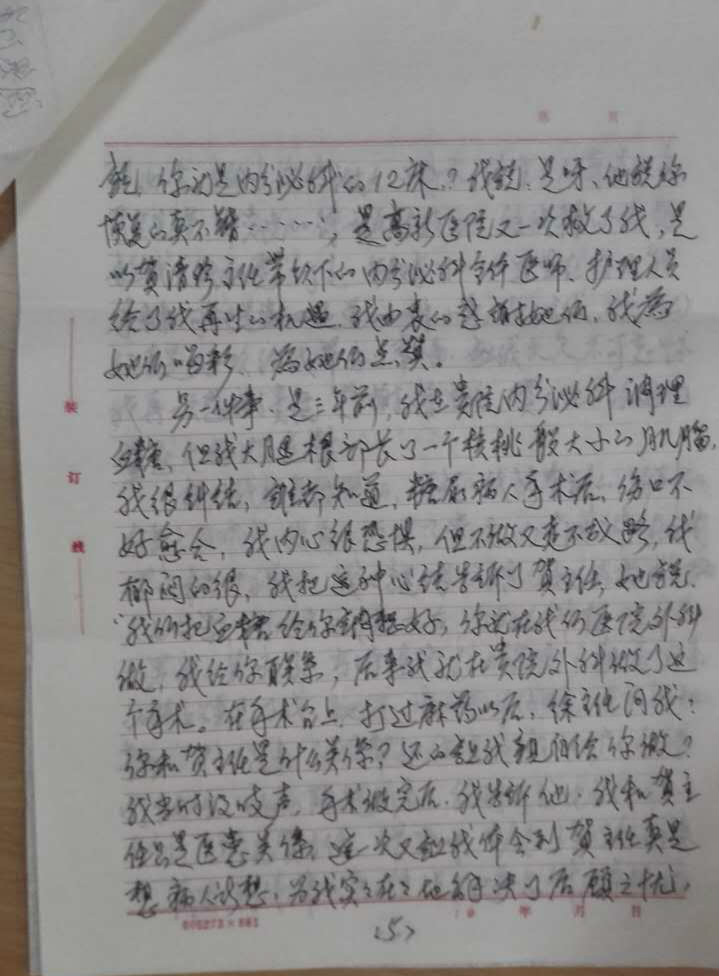 说，你就是内分泌科的12床？我说：是呀、他说你
恢复的真不错……，是高新医院又一次救了我，是
以贺清珍主任带领下的内分泌科全体医师、护理人员
给了我再生的机遇，我由衷的感谢她们，我为
她们喝彩，为她们点赞。
另一件事，是三年前，我在贵院内分泌科调理
血糖，但我大腿根部长了一个核桃般大小的肌瘤，
我很纠结，谁都知道，糖尿病人手术后，伤口不
好愈合，我内心很恐惧，但不做又走不成路，我
郁闷的很，我把这种心结告诉了贺主任，她说，
“我们把血糖给你调整好，你就在我们医院外科
做，我给你联系，后来我就在贵院外科做了这
个手术。在手术台上，打过麻药以后，徐主任问我：
你和贺主任是什么关系？还的让我亲自给你做？
我当时没吱声，手术做完后，我告诉他：我和贺主
任只是医患关系，这次又让我体会到贺主任真是
想病人所想，为我实实在在地解决了后顾之忧，
装
订
线
19 年 月 日
<5>